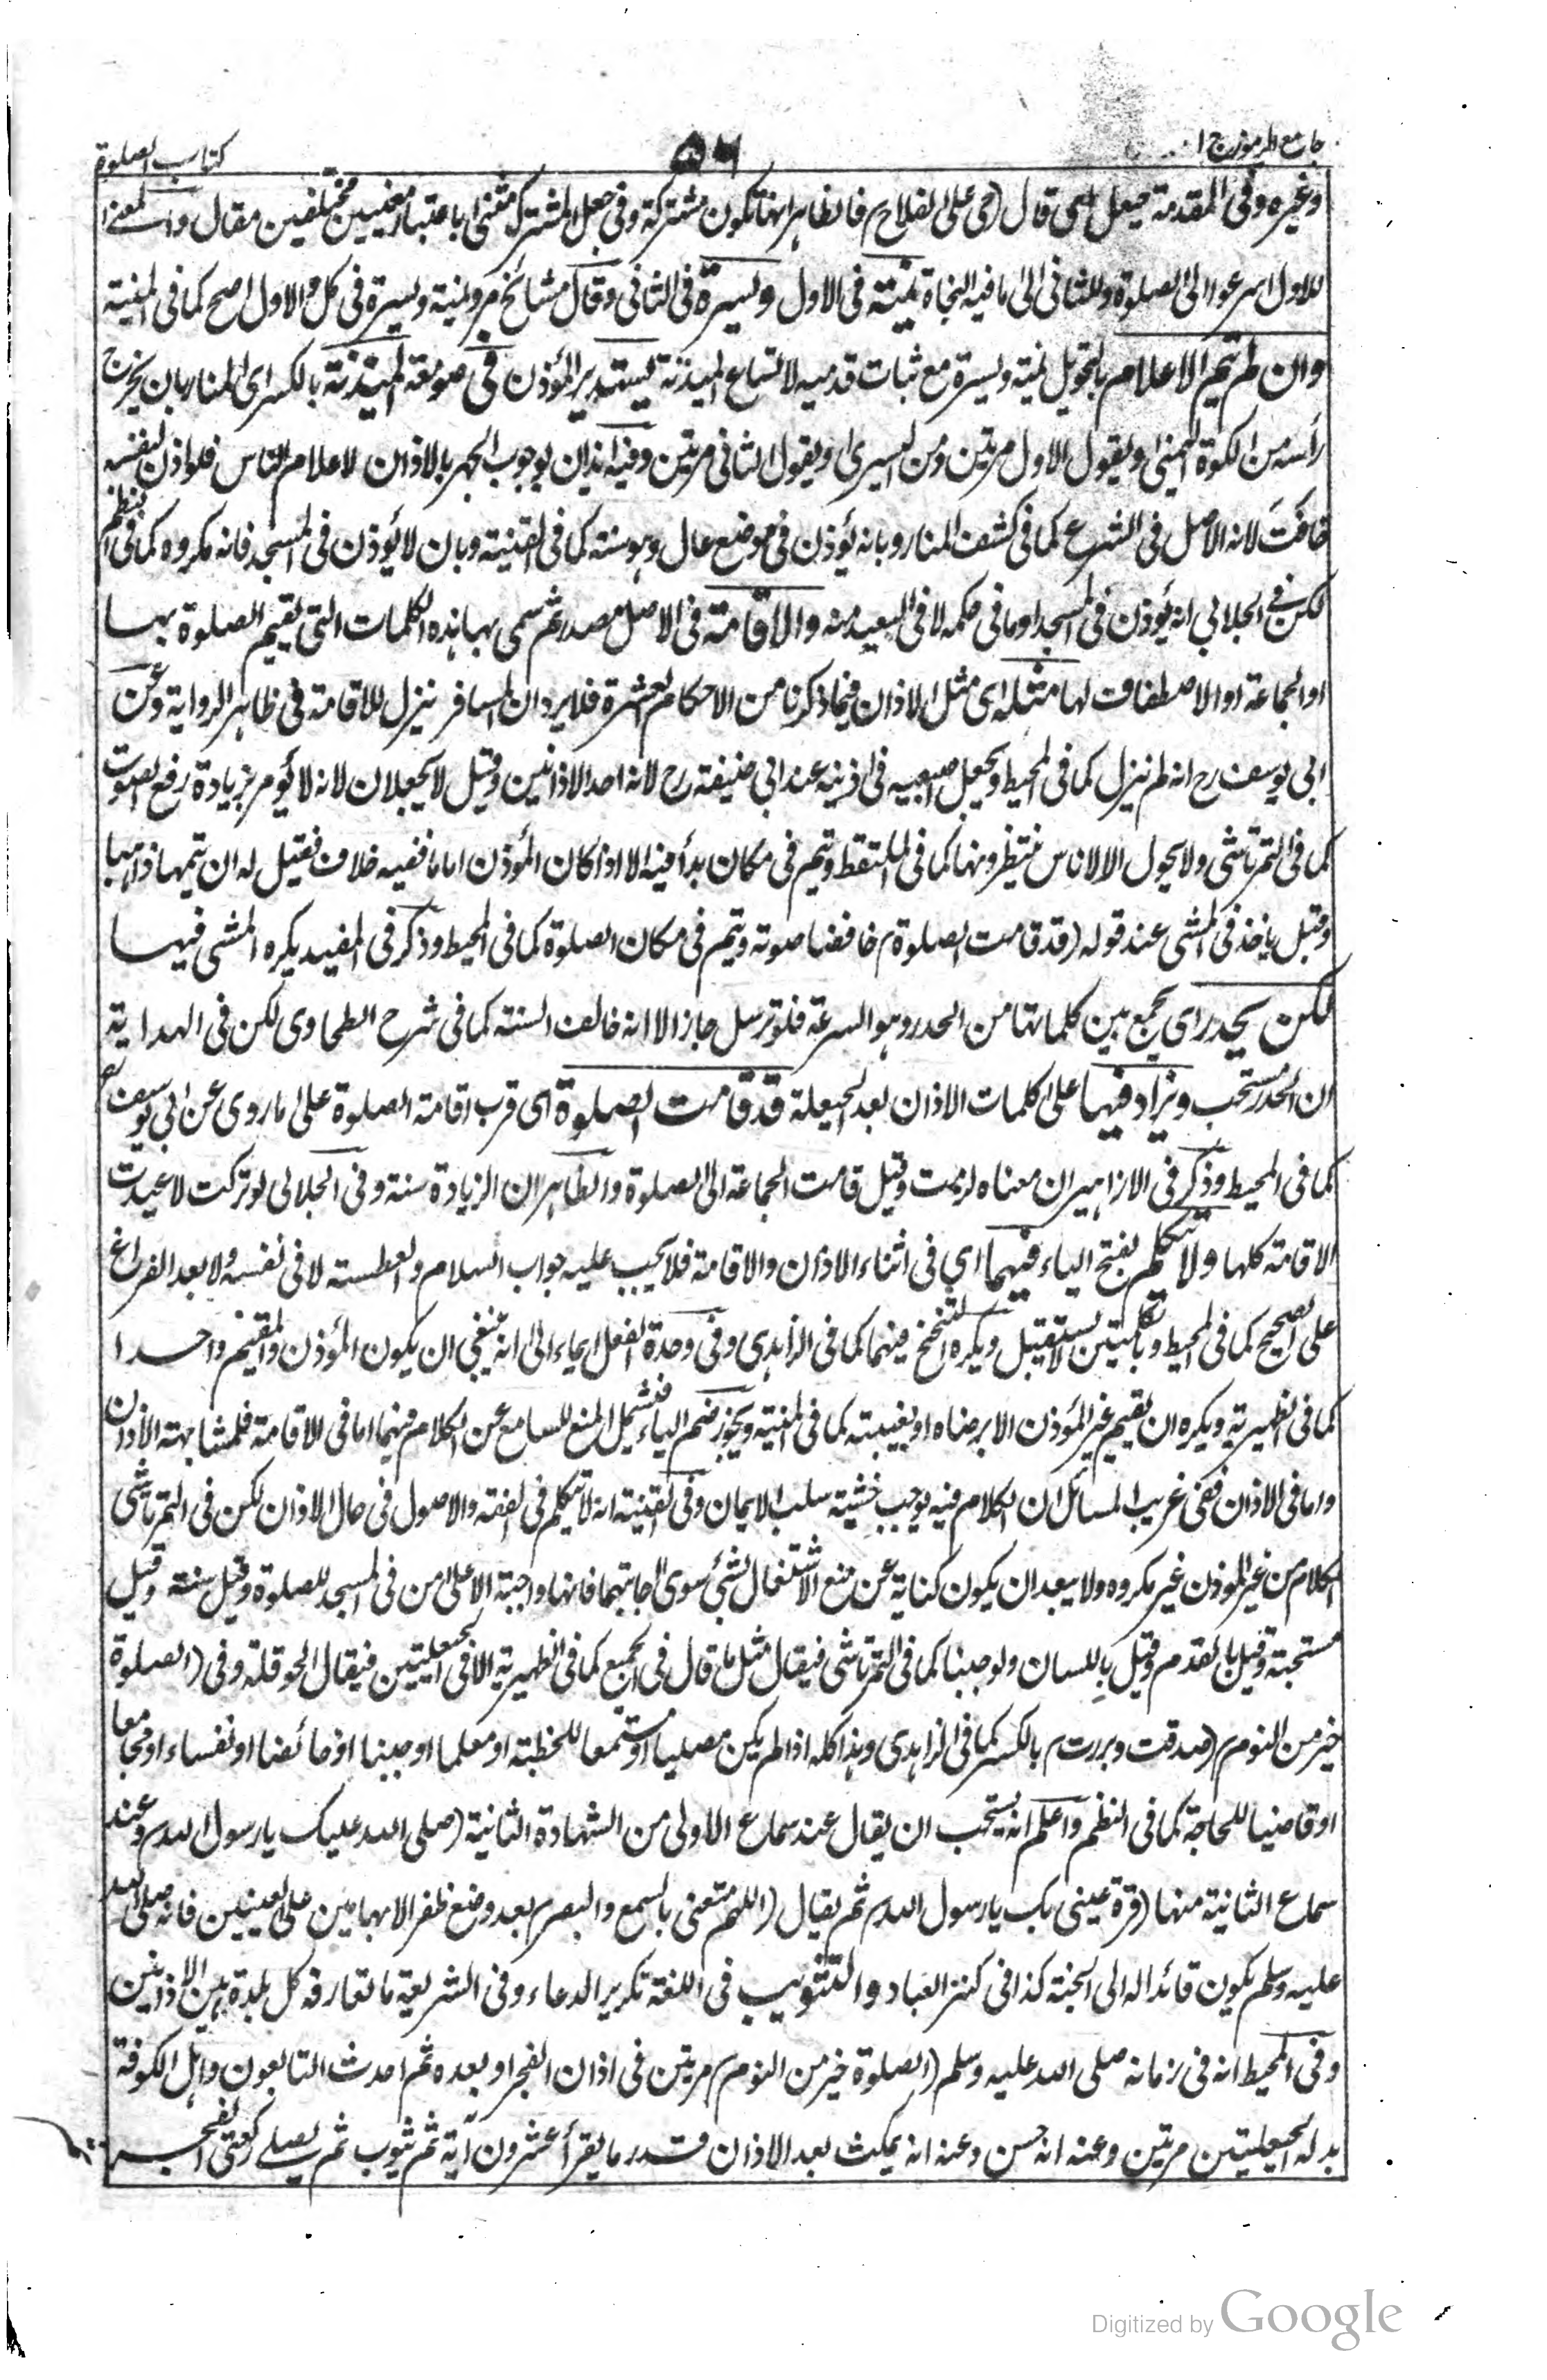 جامع الرموز ج ١
٥٦
كتاب الصلوة
وغيره وفى المقدمة حيعل اى قال (حى على الفلاح) فالظاهر انها تكون مشتركة وفى جعل المشترك مثنى باعتبار معنيين مختلفين مقال والمعنى
للاول اسرعوا الى الصلوة وللثانى الى ما فيه النجاة يمنة فى الاول ويسرة فى الثانى وقال مشائخ مرو يمنة ويسرة فى كل والاول اصح كما فى المنية
وان لم يتم الاعلام بالتحويل يمنة ويسرة مع ثبات قدميه لاتساع الميذنة يستدير المؤذن فى صومعة الميذنة بالكسر اى المنار بان يخرج
رأسه من الكوة اليمنى ويقول الاول مرتين ومن اليسرى ويقول الثانى مرتين وفيه ايذان بوجوب الجهر بالاذان لاعلام الناس فلو اذن لنفسه
خافت لانه الاصل فى الشرع كما فى كشف المنار وبانه يؤذن فى موضع عال وهو سنة كما فى القنية وبان لا يؤذن فى المسجد فانه مكروه كما فى النظم
لكن فى الجلابي انه يؤذن فى المسجد او ما فى حكمه لا فى البعيد منه والاقامة فى الاصل مصدر ثم سمى بها هذه الكلمات التى يقيم الصلوة بها
او الجماعة او الاصطفاف لها مثله اى مثل الاذان فيما ذكرنا من الاحكام العشرة فلا يرد ان المسافر ينزل للاقامة فى ظاهر الرواية وعن
ابى يوسف رح انه لم ينزل كما فى المحيط ويجعل اصبعيه فى اذنيه عند ابى حنيفة رح لانه احد الاذانين وقيل لا يجعلان لانه لا يؤمر بزيادة رفع الصوت
كما فى التمرتاشى ولا يحول الا لاناس ينتظرونها كما فى الملتقط ويتم فى مكان بدأ فيه الا اذا كان المؤذن اماما ففيه خلاف فقيل له ان يتمها ذاهبا
وقيل ياخذ فى المشى عند قوله (قد قامت الصلوة) خافضا صوته ويتم فى مكان الصلوة كما فى المحيط وذكر فى المفيد يكره المشى فيها
لكن يحدر اى يجمع بين كلماتها من الحدر وهو السرعة فلو ترسل جاز الا انه خالف السنة كما فى شرح الطحاوى لكن فى الهداية
ان الحدر مستحب ويزاد فيها على كلمات الاذان بعد الحيعلة قد قامت الصلوة اى قرب اقامة الصلوة على ما روى عن ابى يوسف
كما فى المحيط وذكر فى الازاهير ان معناه لزمت وقيل قامت الجماعة الى الصلوة والظاهر ان الزيادة سنة وفى الجلالى لو تركت لاعيدت
الاقامة كلها ولا يتكلم بفتح الياء فيهما اى فى اثناء الاذان والاقامة فلا يجيب عليه جواب السلام والعطسة لا فى نفسه ولا بعد الفراغ
على الصحيح كما فى المحيط وبكلمتين لا يستقبل ويكره التنحنح فيهما كما فى الزاهدى وفى وحدة الفعل ايماء الى انه ينبغى ان يكون المؤذن والمقيم واحدا
كما فى الظهيرية ويكره ان يقيم غير المؤذن الا برضاه او بغيبته كما فى المنية ويجوز ضم الياء فيشمل المنع للسامع عن الكلام فيهما اما فى الاقامة فلمشابهة الاذان
واما فى الاذان ففى غريب المسائل ان الكلام فيه يوجب خشية سلب الايمان وفى القنية انه لا يتكلم فى الفقه والاصول فى حال الاذان لكن فى التمرتاشى
الكلام من غير المؤذن غير مكروه ولا يبعد ان يكون كناية عن منع الاشتغال بشئ سوى اجابتهما فانها واجبة الا على من فى المسجد للصلوة وقيل سنة وقيل
مستحبة وقيل بالقدم وقيل باللسان ولو جنبا كما فى التمرتاشى فيقال مثل ما قال فى الجميع كما فى الظهيرية الا فى الحيعلتين فيقال الحوقلة وفى (الصلوة
خير من النوم) (صدقت وبررت) بالكسر كما فى الزاهدى وهذا كله اذا لم يكن مصليا او مستمعا للخطبة او معلما او جنبا او حائضا او نفساء او مجامعا
او قاضيا للحاجة كما فى النظم واعلم انه يستحب ان يقال عند سماع الاولى من الشهادة الثانية (صلى الله عليك يا رسول الله) وعند
سماع الثانية منها (قرة عينى بك يا رسول الله) ثم يقال (اللهم متعنى بالسمع والبصر) بعد وضع ظفر الابهامين على العينين فانه صلى الله
عليه وسلم يكون قائدا له الى الجنة كذا فى كنز العباد والتثويب فى اللغة تكرير الدعاء وفى الشريعة ما تعارفه كل بلدة بين الاذانين
وفى المحيط انه فى زمانه صلى الله عليه وسلم (الصلوة خير من النوم) مرتين فى اذان الفجر او بعده ثم احدث التابعون واهل الكوفة
بدله الحيعلتين مرتين وعنه انه حسن وعنه انه يمكث بعد الاذان قدر ما يقرأ عشرون آية ثم يثوب ثم يصلے ركعتى الفجر
Digitized by Google